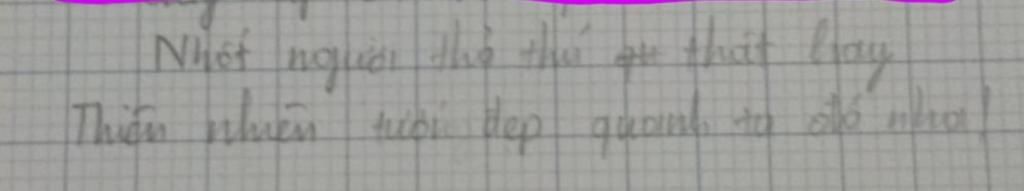 Nhốt người thì thú thật hay
Thiên nhiên tươi đẹp quanh ta đó nha!